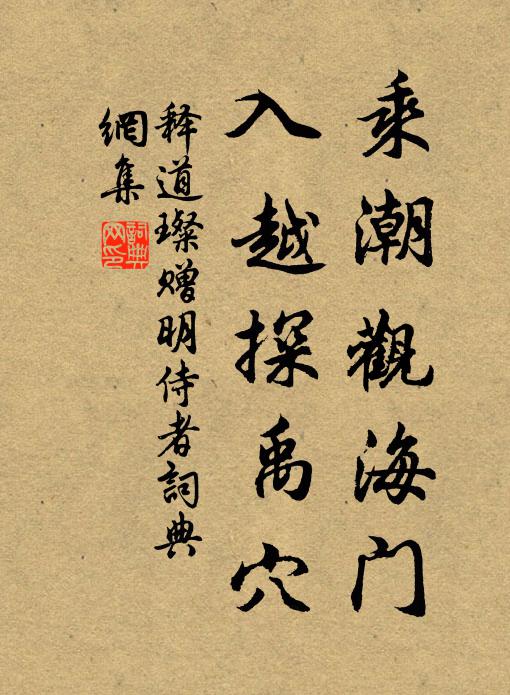 乘潮觀海门
入越探禹穴
释道璨赠明侍者詞典
網集
詞典
网印